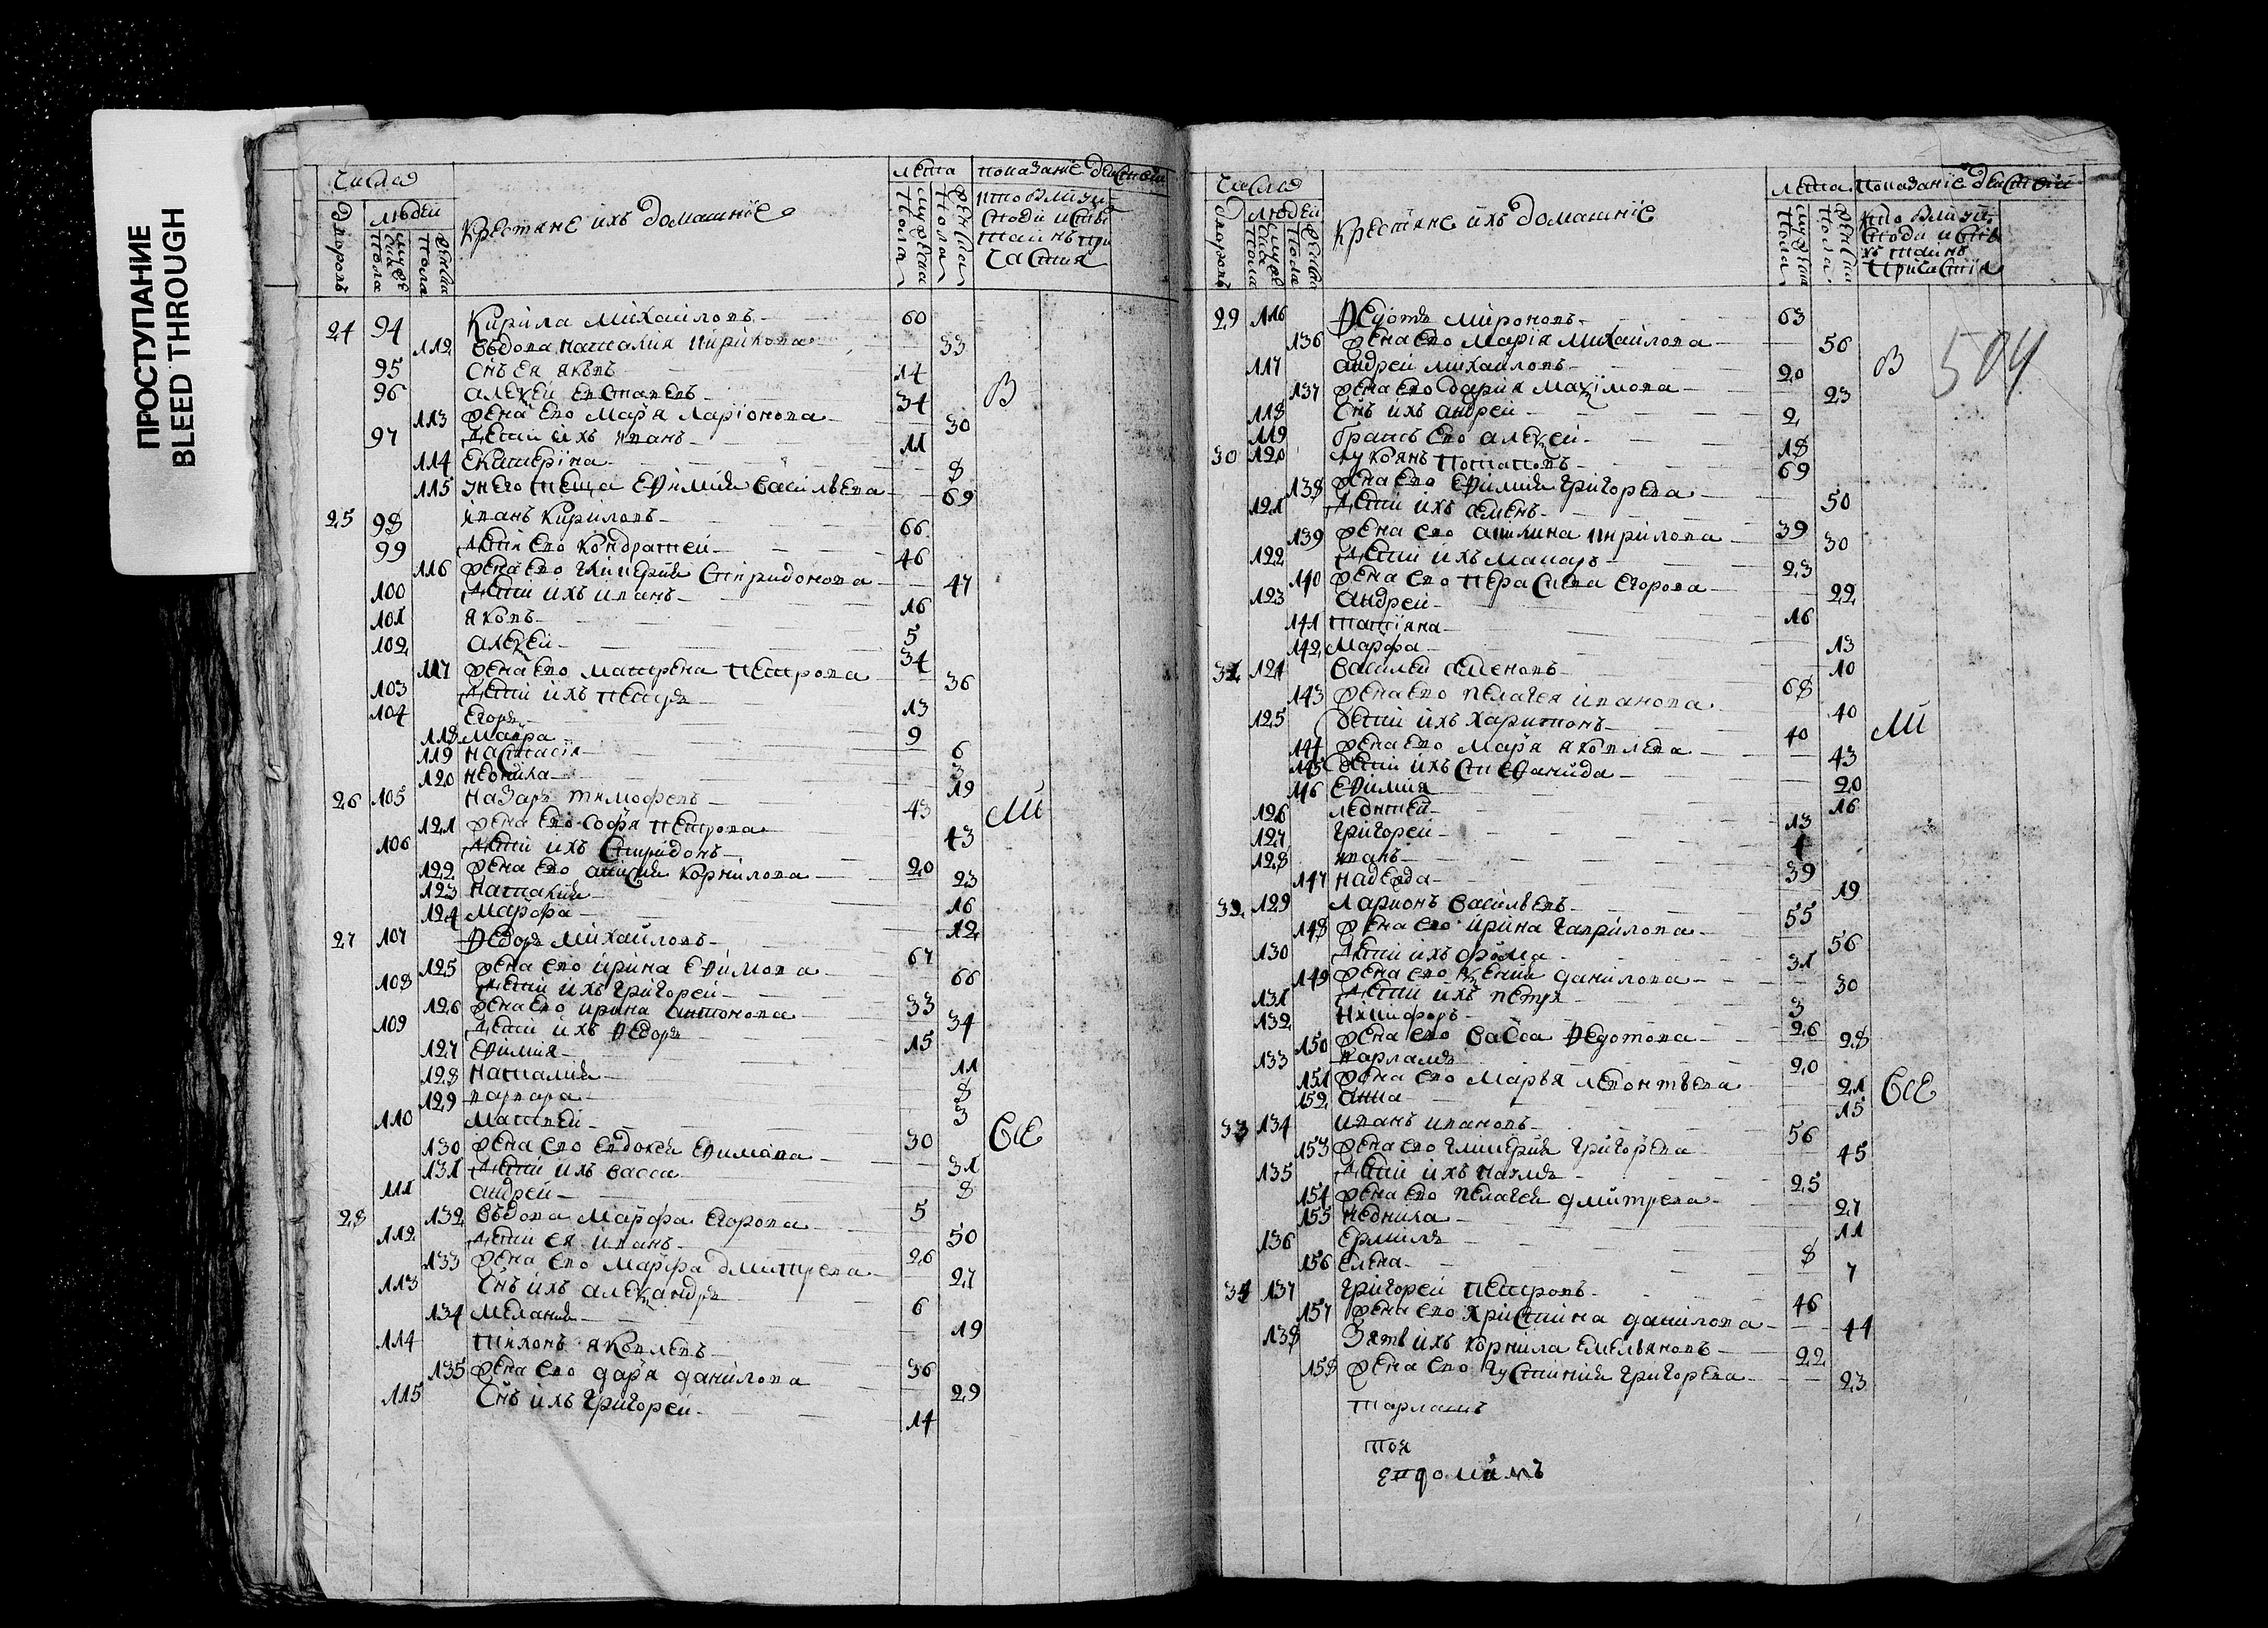 ПРОСТУПАНИЕ
BLEED THROUGH
числа
людей
Крестяне ихъ домашніе
лета
показаніе действеи
24 94 Кирила Михаиловъ 60
112 вдова наталия кирилова 33
95 снъ ея яковъ 14
96 алеѯеи евставевъ 34
В
113 жена ево марья ларіонова 30
97 дети ихъ иванъ 11
114 Екатеріна 8
115 у него теща ефимия васильева 69
25 98 иванъ кириловъ 66
99 дети ево кондратеи 46
116 жена ево гликерия спиридонова 47
100 дети ихъ иванъ 16
101 яковъ 5
102 алеѯеи 34
117 жена ево матрена петрова 36
103 дети ихъ петръ 13
104 егоръ 9
118 мавра 6
119 настасія 3
120 неонила 19
26 105 назаръ тимофевъ 43
МИ
121 жена ево софья петрова 43
106 дети ихъ спиридонъ 20
122 жена ево анисия корнилова 23
123 наталия 16
124 марфа 12
27 107 федоръ михаиловъ 67
125 жена ево ирина ефимова 66
108 дети ихъ григореи 33
126 жена ево ирина антонова 34
109 дети ихъ федоръ 15
127 ефимия 11
128 наталия 8
129 варвара 3
110 матвеи 30
ВСЕ
130 жена ево евдокея ефимова 31
131 дети ихъ васса 8
111 андреи 5
28 132 вдова марфа егорова 50
112 дети ея иванъ 26
133 жена ево марфа дмитрева 27
113 снъ ихъ алеѯандръ 6
134 мелания 19
114 тихонъ яковлевъ 36
135 жена ево дарья данилова 29
115 снъ ихъ григореи 14
числа
людей
Крестяне ихъ домашніе
лета
показаніе действеи
29 116 федотъ мироновъ 63
136 жена ево марія михаилова 56
504
117 андреи михаиловъ 20
В
137 жена ево дария маѯимова 23
118 снъ ихъ андреи 2
119 братъ ево алеѯеи 18
30 120 лукоянъ потаповъ 69
138 жена ево ефимия григорева 50
121 дети ихъ семенъ 39
139 жена ево акилина кирилова 30
122 дети ихъ макаръ 23
140 жена ево пераскева егорова 22
123 андреи 16
141 татіяна 13
142 марфа 10
31 124 василеи семеновъ 68
143 жена ево пелагея иванова 40
125 дети ихъ харитонъ 40
МИ
144 жена ево марья яковлева 43
145 дети ихъ стефанида 20
146 ефимия 16
126 леонтеи 13
127 григореи 4
128 иванъ 39
147 надежда 19
32 129 ларионъ васильевъ 55
148 жена ево ирина гаврилова 56
130 дети ихъ фома 31
149 жена ево ѯения данилова 30
131 дети ихъ петръ 3
132 никифоръ 26
150 жена ево васса федотова 28
133 варламъ 20
151 жена ево марья леонтьева 21
ВСЕ
152 анна 15
33 134 иванъ ивановъ 56
153 жена ево гликерия григорева 45
135 дети ихъ наумъ 25
154 жена ево пелагея дмитрева 27
155 неонила 11
136 ермилъ 8
156 елена 7
34 137 григореи петровъ 46
157 жена ево христина данилова 44
138 зять ихъ корнила емельяновъ 22
158 жена ево густиния григорева 23